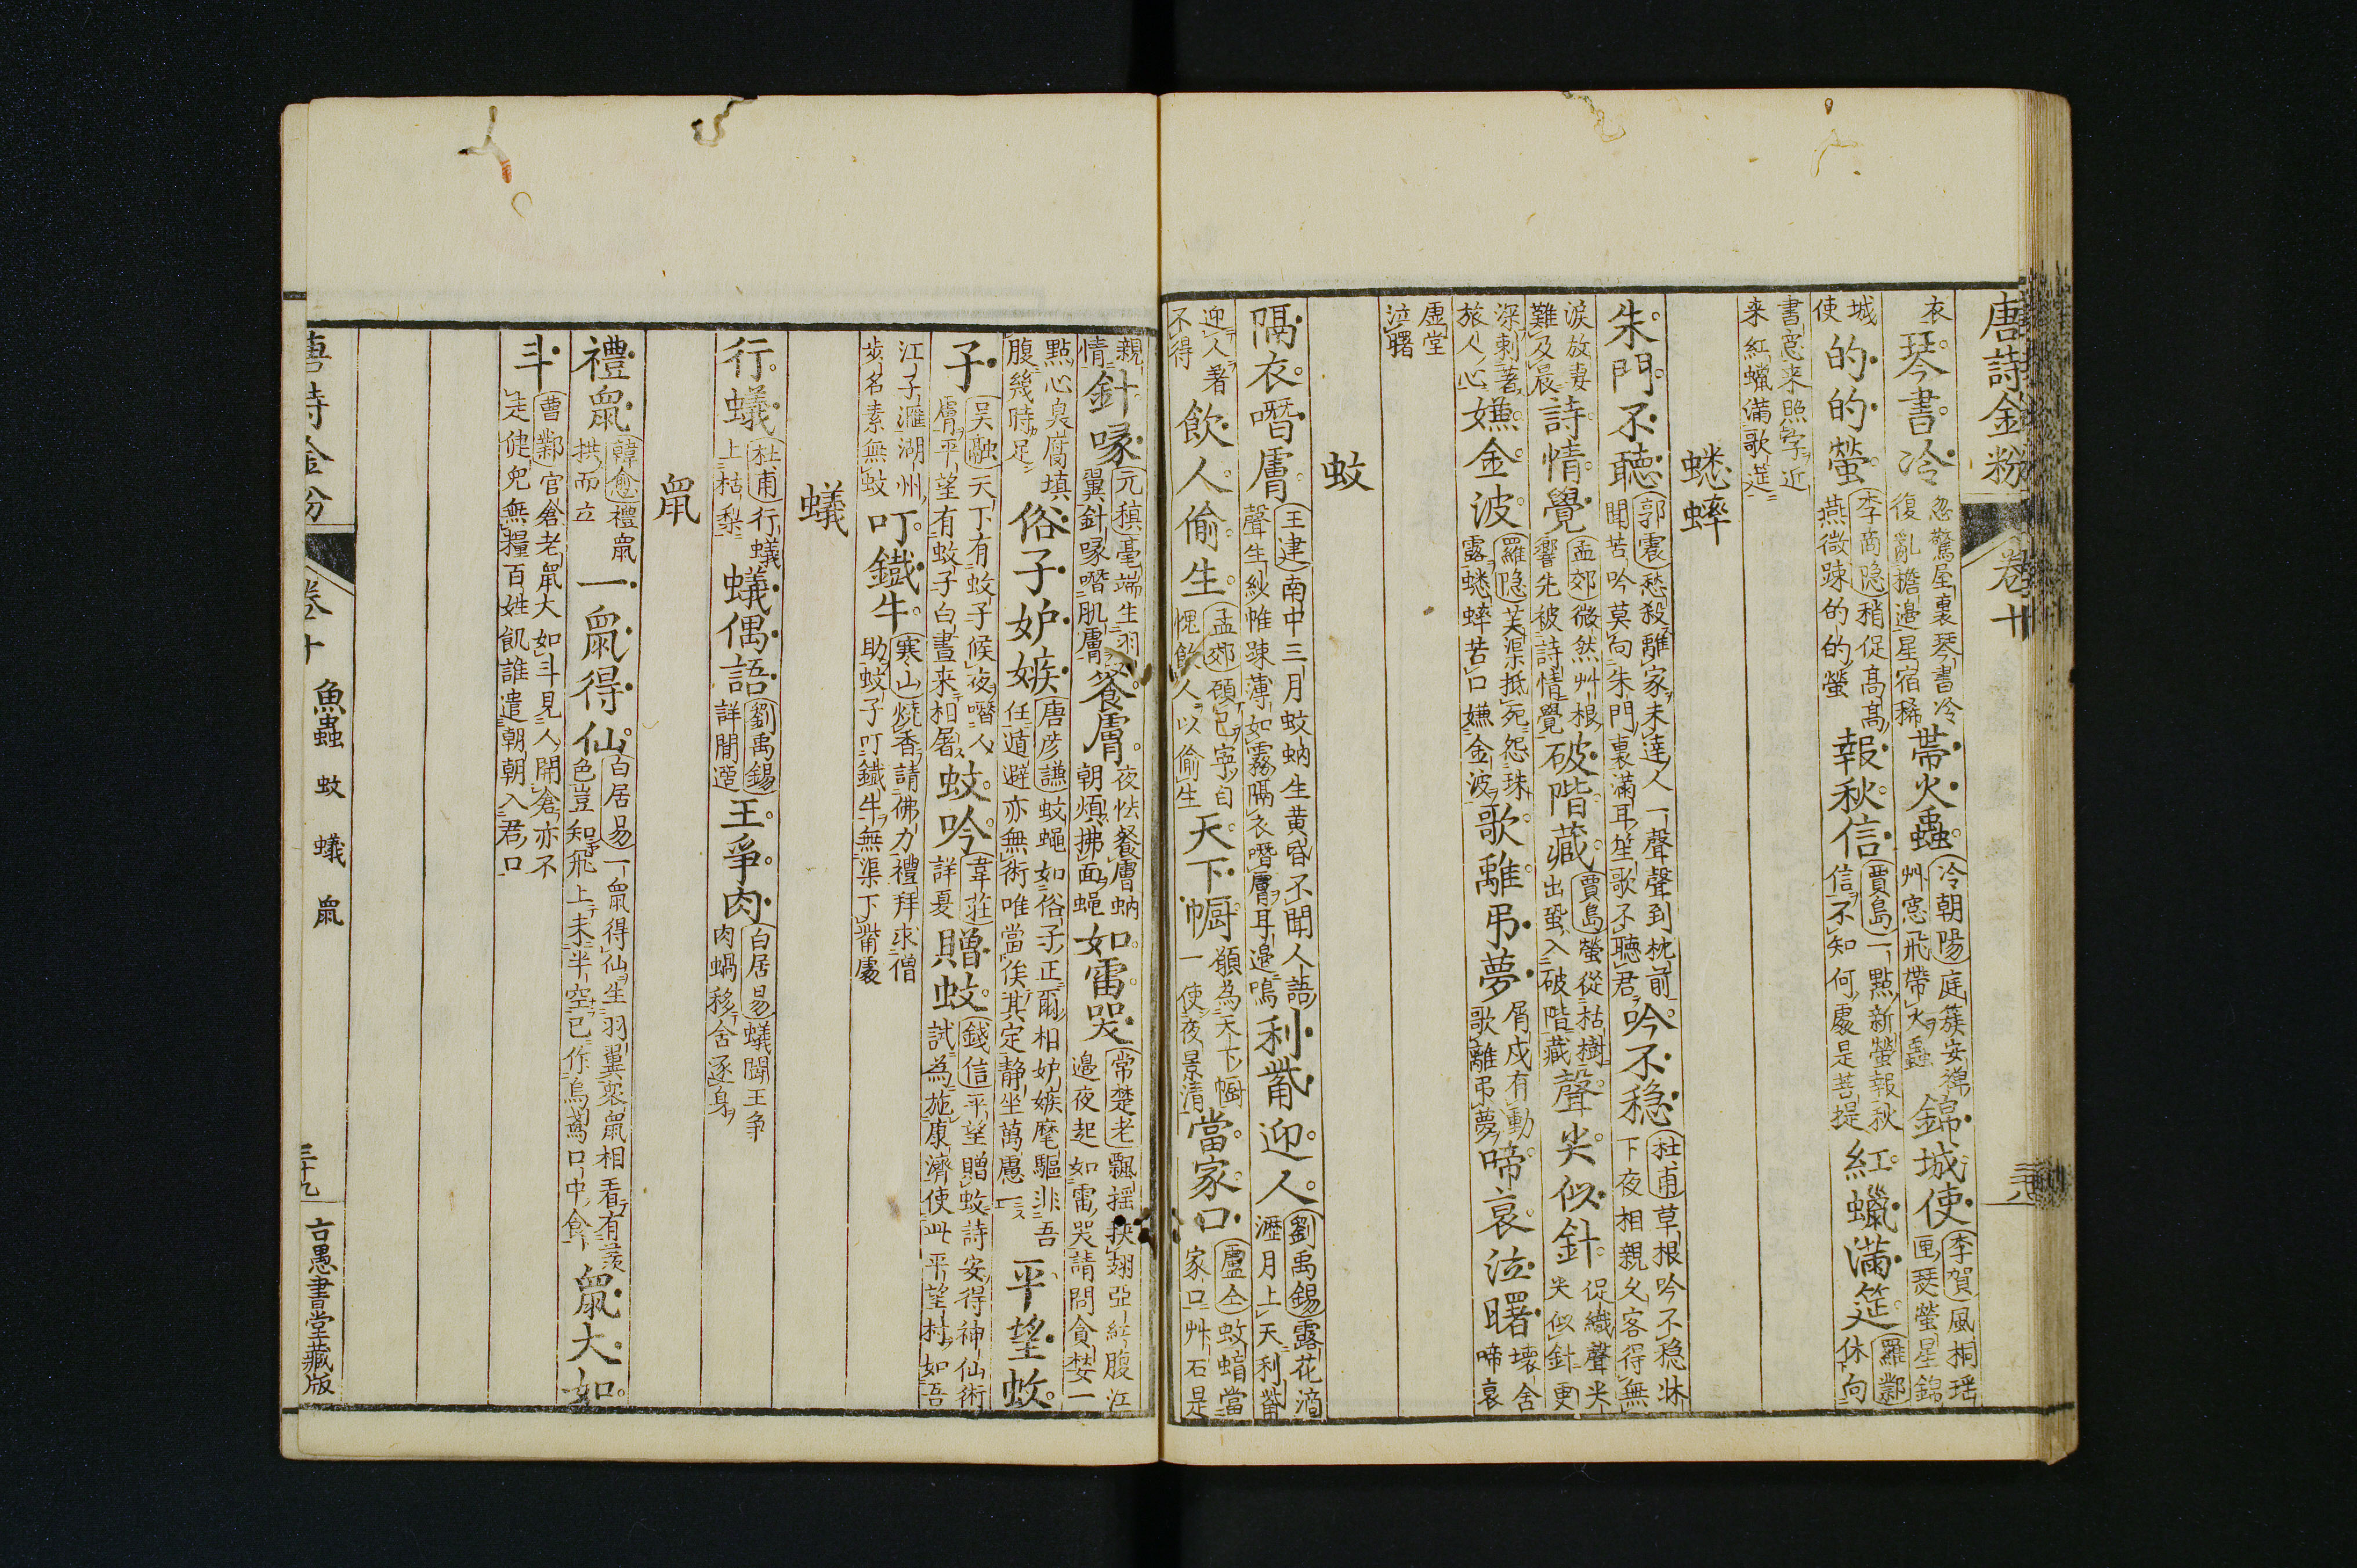 唐詩金粉　卷十　三十八
衣琴書冷忽驚屋裏琴書冷復亂擔邊星宿稀帶火蟲冷朝陽庭簇安禪艸窓飛帶火蟲錦城使李賀風桐瑶匣瑟螢星錦
城使的的螢李商隐稍促高高燕微踈的的螢報秋信賈島一點新螢報秋信不知何處是菩提紅蠟滿筵羅鄴休向
書窓来照字近来紅蠟滿歌筵
蟋蟀
朱門不聴郭震愁殺離家未達人一聲聲到枕前聞苦吟莫向朱門裏滿耳笙歌不聴君吟不穏杜甫草根吟不穏牀下夜相親久客得無
淚放妻難及晨詩情覺孟郊微然艸根響先被詩情覺破階藏賈島螢從枯樹出蛩入破階藏聲尖似針促織聲尖尖似針更
深刺著旅人心嫌金波羅隐芙渠抵死怨珠露蟋蟀苦口嫌金波歌離弔夢屑戍有動歌離弔夢啼哀泣曙壞舍啼哀
虚堂泣曙
蚊
隔衣噆膚王建南中三月蚊蚋生黄昏不聞人語聲生紗帷踈薄如霧隔衣噆膚耳邊鳴利觜迎人劉禹錫露花滴瀝月上天利觜
迎人著不得飲人偷生孟郊願已寧自愧飲人以偷生天下㡡願為天下㡡一使夜景清當家口盧仝蚊當家口艸石是
親情針喙元稹毫端生羽翼針喙噆肌膚飡膚夜怯餐膚蚋朝煩拂面蝿如雷哭常楚老飄揺挾翅亞紅腹江邊夜起如雷哭請問貪婪一
點心臭腐填腹幾時足俗子妒嫉唐彦謙蚊蠅如俗子正爾相妒嫉麾驅非吾任遁避亦無術唯當俟其定静坐萬慮一平望蚊
子吳融天下有蚊子候夜噆人膚平望有蚊子白晝来相屠蚊吟韋莊詳夏贈蚊錢信平望贈蚊詩安得神仙術試為施康濟使此平望村如吾
江子滙湖州歩名素無蚊叮鐵牛寒山燒香請佛力禮拜求僧助蚊子叮鐵牛無渠下觜處
蟻
行蟻杜甫行蟻上枯梨蟻偶語劉禹錫詳閒遊王爭肉白居易蟻鬪王争肉蝸移舍逐身
鼠
禮鼠韓愈禮鼠拱而立一鼠得仙白居易一鼠得仙生羽翼衆鼠相看有羨色豈知飛上未半空已作烏鳶口中食鼠大如
斗曹鄴官倉老鼠大如斗見人開倉亦不走健兒無糧百姓飢誰遣朝朝入君口
唐詩金粉　卷十　魚蟲　蚊　蟻　鼠　三十九　古愚書堂藏版